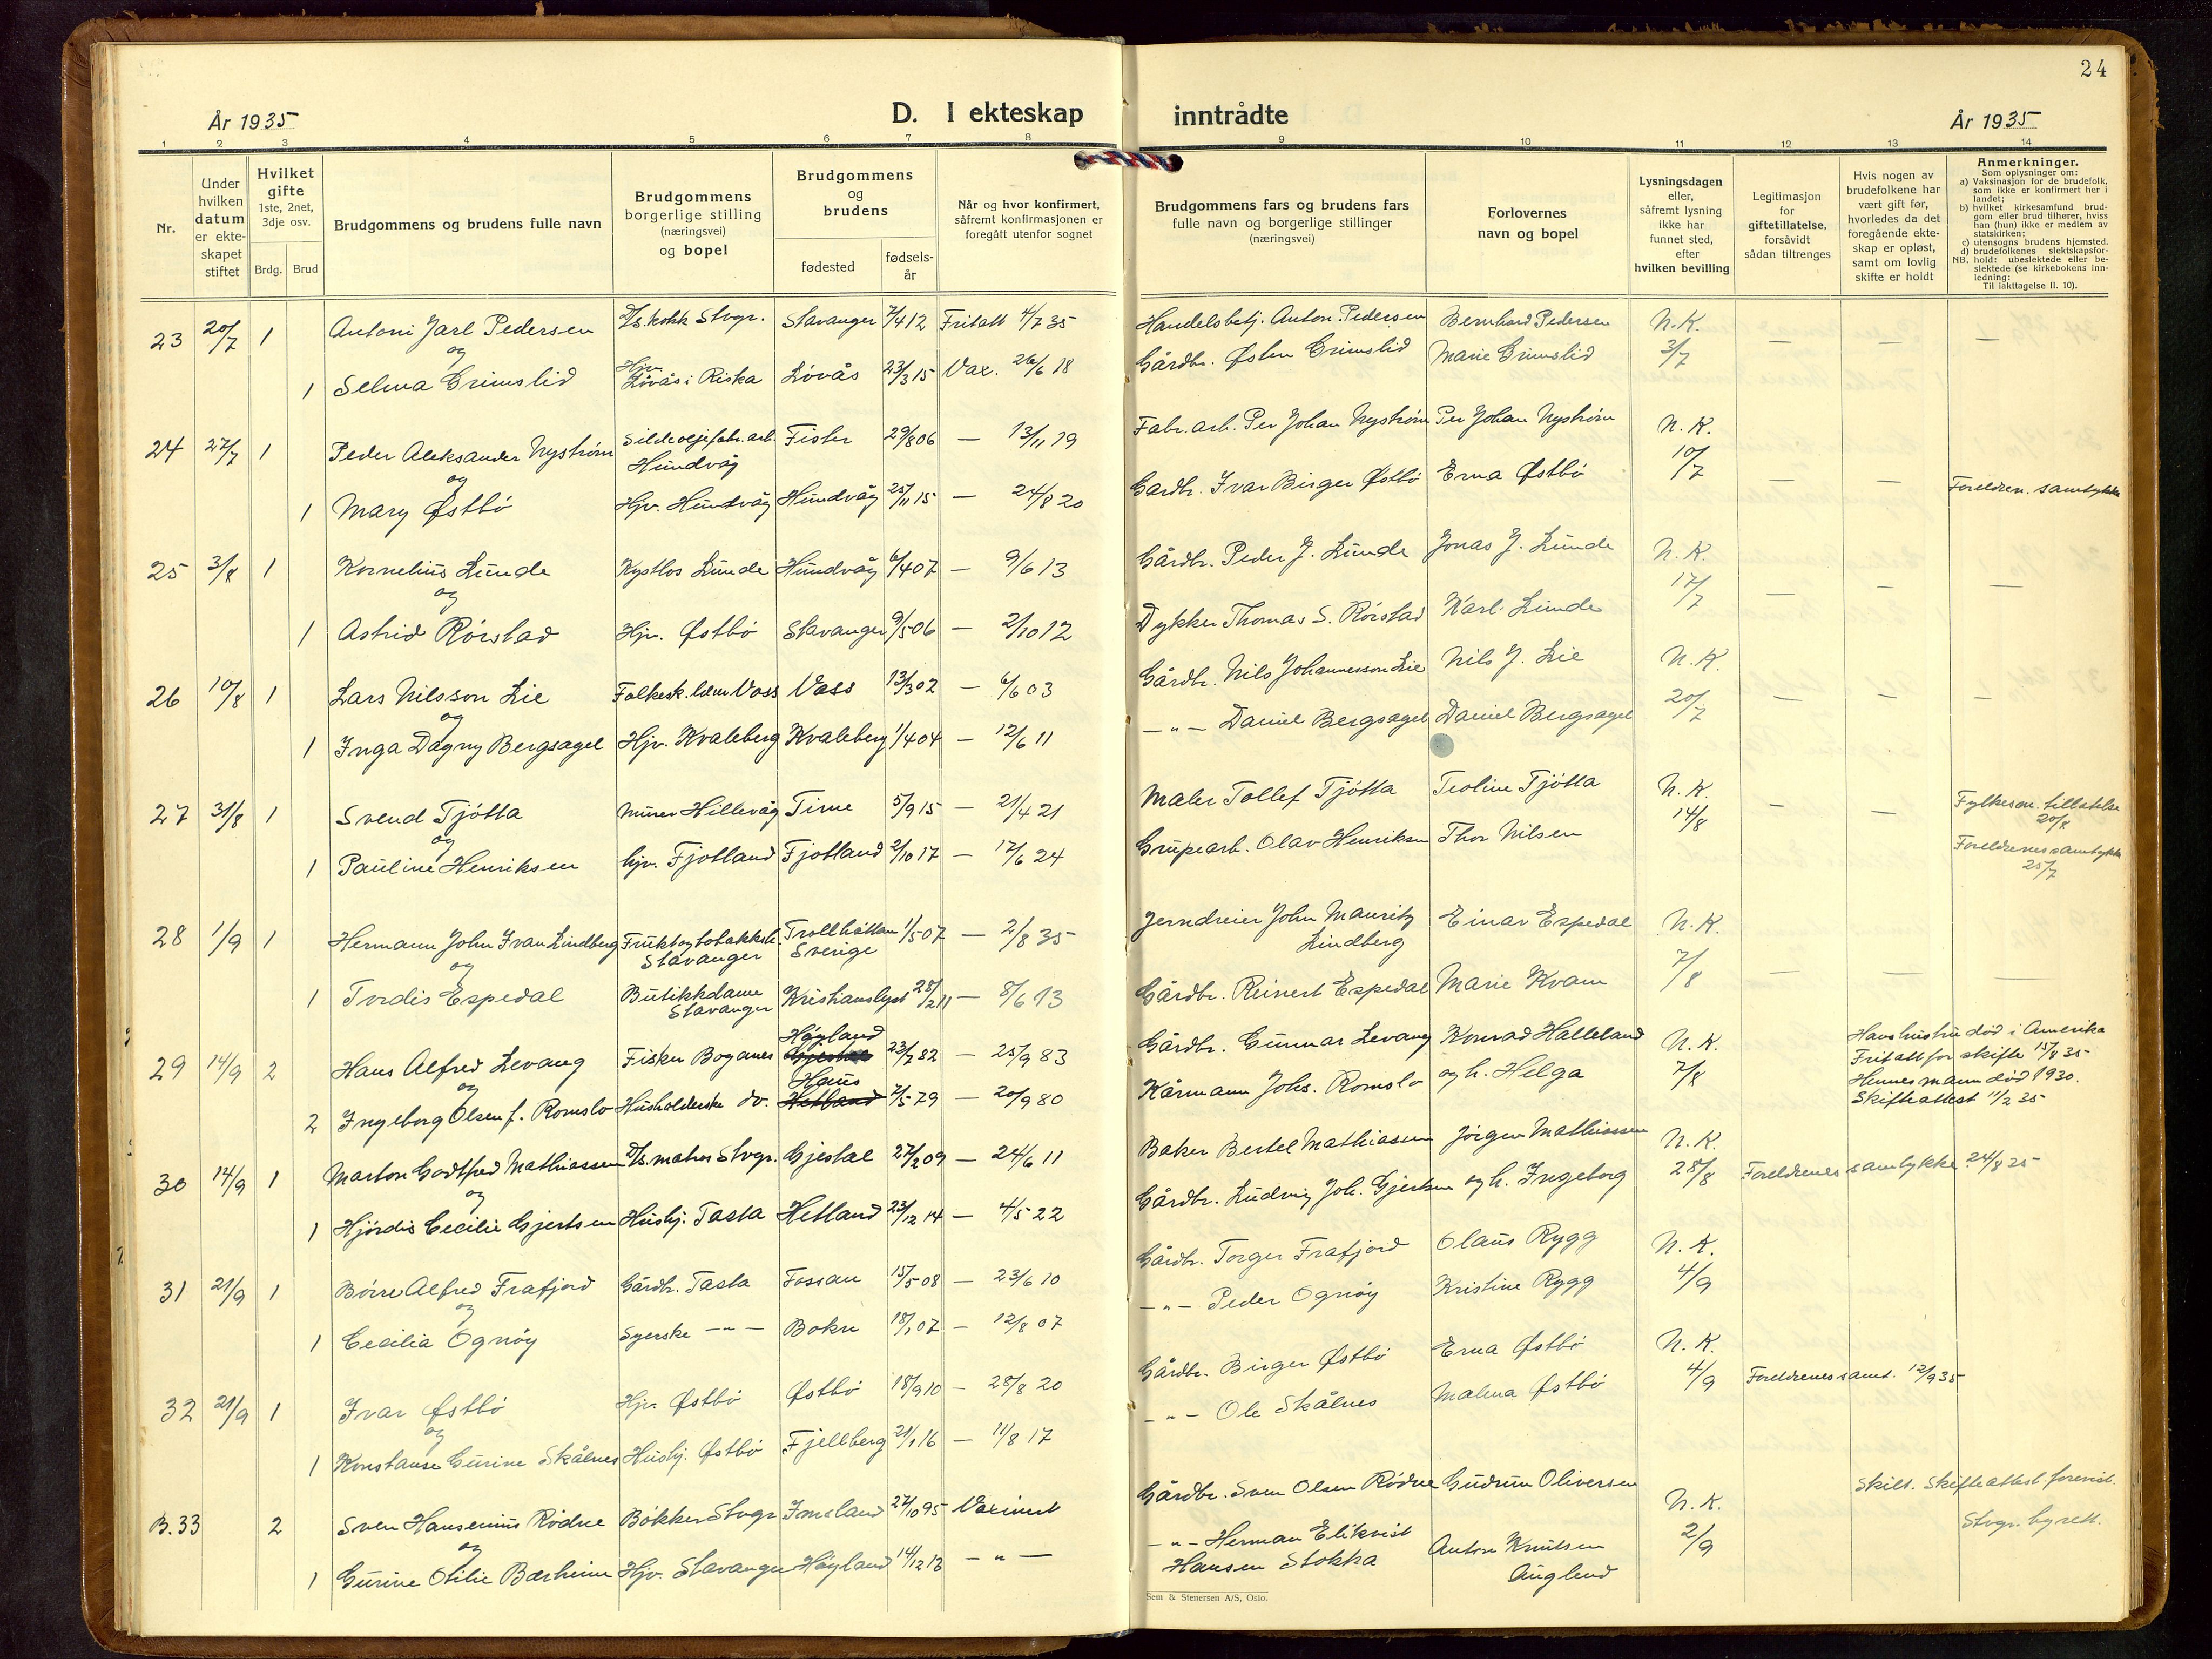 24
År 1935
D. I ekteskap inntrådte
År 1935
1 2 3 4 5 6 7 8 9 10 11 12 13 14
Nr.
Under hvilken datum er ekteskapet stiftet
Hvilket gifte 1ste, 2net, 3dje osv.
Brdg. Brud
Brudgommens og brudens fulle navn
Brudgommens borgerlige stilling (næringsvei) og bopel
Brudgommens og brudens
fødested
fødselsår
Når og hvor konfirmert, såfremt konfirmasjonen er foregått utenfor sognet
Brudgommens fars og brudens fars fulle navn og borgerlige stillinger (næringsvei)
Forlovernes navn og bopel
Lysningsdagen eller, såfremt lysning ikke har funnet sted, efter hvilken bevilling
Legitimasjon for giftetillatelse, forsåvidt sådan tiltrenges
Hvis nogen av brudefolkene har vært gift før, hvorledes da det foregående ekteskap er opløst, samt om lovlig skifte er holdt
Anmerkninger.
Som oplysninger om:
a) Vaksinasjon for de brudefolk, som ikke er konfirmert her i landet;
b) hvilket kirkesamfund brudgom eller brud tilhører, hviss han (hun) ikke er medlem av statskirken;
c) utensogns brudens hjemsted.
d) brudefolkenes slektskapsforhold: ubeslektede eller beslektede (se kirkebokens innledning:
NB.
Til iakttagelse II. 10).
23 20/7 1 Antoni Jarl Pedersen D/S. kokk Stvgr. Stavanger 7/4 12 Fritatt 4/7 35 Handelsbetj. Anton Pedersen Bernhard Pedersen N.K. — — —
og
1 Selma Grimslid Hjv. Løvås i Riska Løvås 23/3 15 Vax. 26/6 18 Gårdbr. Østen Grimslid Marie Grimslid 3/7
24 27/7 1 Peder Aleksander Nystrøm Sildeoljefabr. arb. Hundvåg Fister 29/8 06 — 13/11 19 Fabr. arb. Per Johan Nystrøm Per Johan Nystrøm N.K.
og
1 Mary Østbö Hjv. Hundvåg Hundvåg 25/11 15 — 24/8 20 Gardbr. Ivar Birger Østbö Erna Østbö 10/7 — — Foreldren. samtykke
25 3/8 1 Kornelius Lunde Kystlos Lunde Hundvåg 6/4 07 — 9/6 13 Gårdbr. Peder J. Lunde Jonas J. Lunde N.K.
og
1 Astrid Rörstad Hjv. Østbö Stavanger 9/5 06 — 2/10 12 Dykker Thomas S. Rörstad Karl Lunde 17/7 — — —
26 10/8 1 Lars Nilsson Lie Folkesk. lærer Voss Voss 13/3 02 — 6/6 03 Gårdbr. Nils Johannesson Lie Nils J. Lie N.K.
og
1 Inga Dagny Bergsagel Hjv. Kvaleberg Kvaleberg 1/4 04 — 12/6 11 — " — Daniel Bergsagel Daniel Bergsagel 20/7 — — —
27 31/8 1 Svend Tjötta Murer Hillevåg Time 5/9 15 — 21/4 21 Maler Tollef Tjötta Teoline Tjötta N.K. — — Fylkesm. tillatelse 20/8
og
1 Pauline Henriksen hjv. Fjotland Fjotland 2/10 17 — 17/6 24 Grupearb. Olav Henriksen Thor Nilsen 14/8 Foreldrenes samtykke 25/7
28 1/9 1 Hermann John Ivan Lindberg Frukt og tobakksh. Stavanger Trollhättan Sverige 1/5 07 — 2/8 35 Jerndreier John Mauritz Lindberg Einar Espedal N.K.
og
1 Tordis Espedal Butikkdame Stavanger Kristianslyst 28/2 11 — 8/6 13 Gårdbr. Reinert Espedal Marie Kvam 7/8 — — —
29 14/9 2 Hans Alfred Levang Fisker Boganes Höyland Gjestal 23/7 82 — 25/9 83 Gårdbr. Gunnar Levang Konrad Halleland N.K. Hans hustru död i Amerika
Fritatt for skifte 15/8 35
og
2 Ingeborg Olsen f. Romslo Husholderske do. Haus Hetland 7/5 79 — 20/9 80 Kårmann Johs. Romslo og h. Helga 7/8 Hennes mann död 1930.
Skifteattest 11/2 35
30 14/9 1 Marton Godtfred Mathiassen D/s. matros Stvgr. Gjestal 27/2 09 — 24/6 11 Baker Bertel Mathiassen Jörgen Mathiassen N.K.
og
1 Hjördis Cecilie Gjertsen Hushj. Tasta Hetland 23/12 14 — 4/5 22 Gårdbr. Ludvig Joh. Gjertsen og h. Ingeborg 28/8 Foreldrenes samtykke 24/8 35
31 21/9 1 Börre Alfred Frafjord Gårdbr. Tasta Fossan 15/5 08 — 23/6 10 Gårdbr. Torger Frafjord Olaus Rygg N.K.
og
1 Cecilia Ognöy Syerske — " — Bokn 18/1 07 — 12/8 07 — " — Peder Ognöy Kristine Rygg 4/9
32 21/9 1 Ivar Østbö Hjv. Østbö Østbö 18/9 10 — 28/8 20 Gårdbr. Birger Østbö Erna Østbö N.K.
og
1 Konstanse Gurine Skålnes Hushj. Østbö Fjellberg 21/1 16 — 11/8 17 — " — Ole Skålnes Malma Østbö 4/9 Foreldrenes samt. 12/9 35
B.33 2 Sven Hansenius Rödne Bökker Stvgr Imsland 27/10 95 Vaxinert Gårdbr. Sven Olsen Rödne Gudrun Oliversen N.K. Skilt. Skifteattest forevist.
Stvgr. byrett.
og
1 Gurine Otilie Bærheim Hjv. Stavanger Höyland 14/12 13 — " — — " — Herman Elikvist Hansen Stokka Anton Knutsen Auglend 2/9
Sem & Stenersen A/S, Oslo.